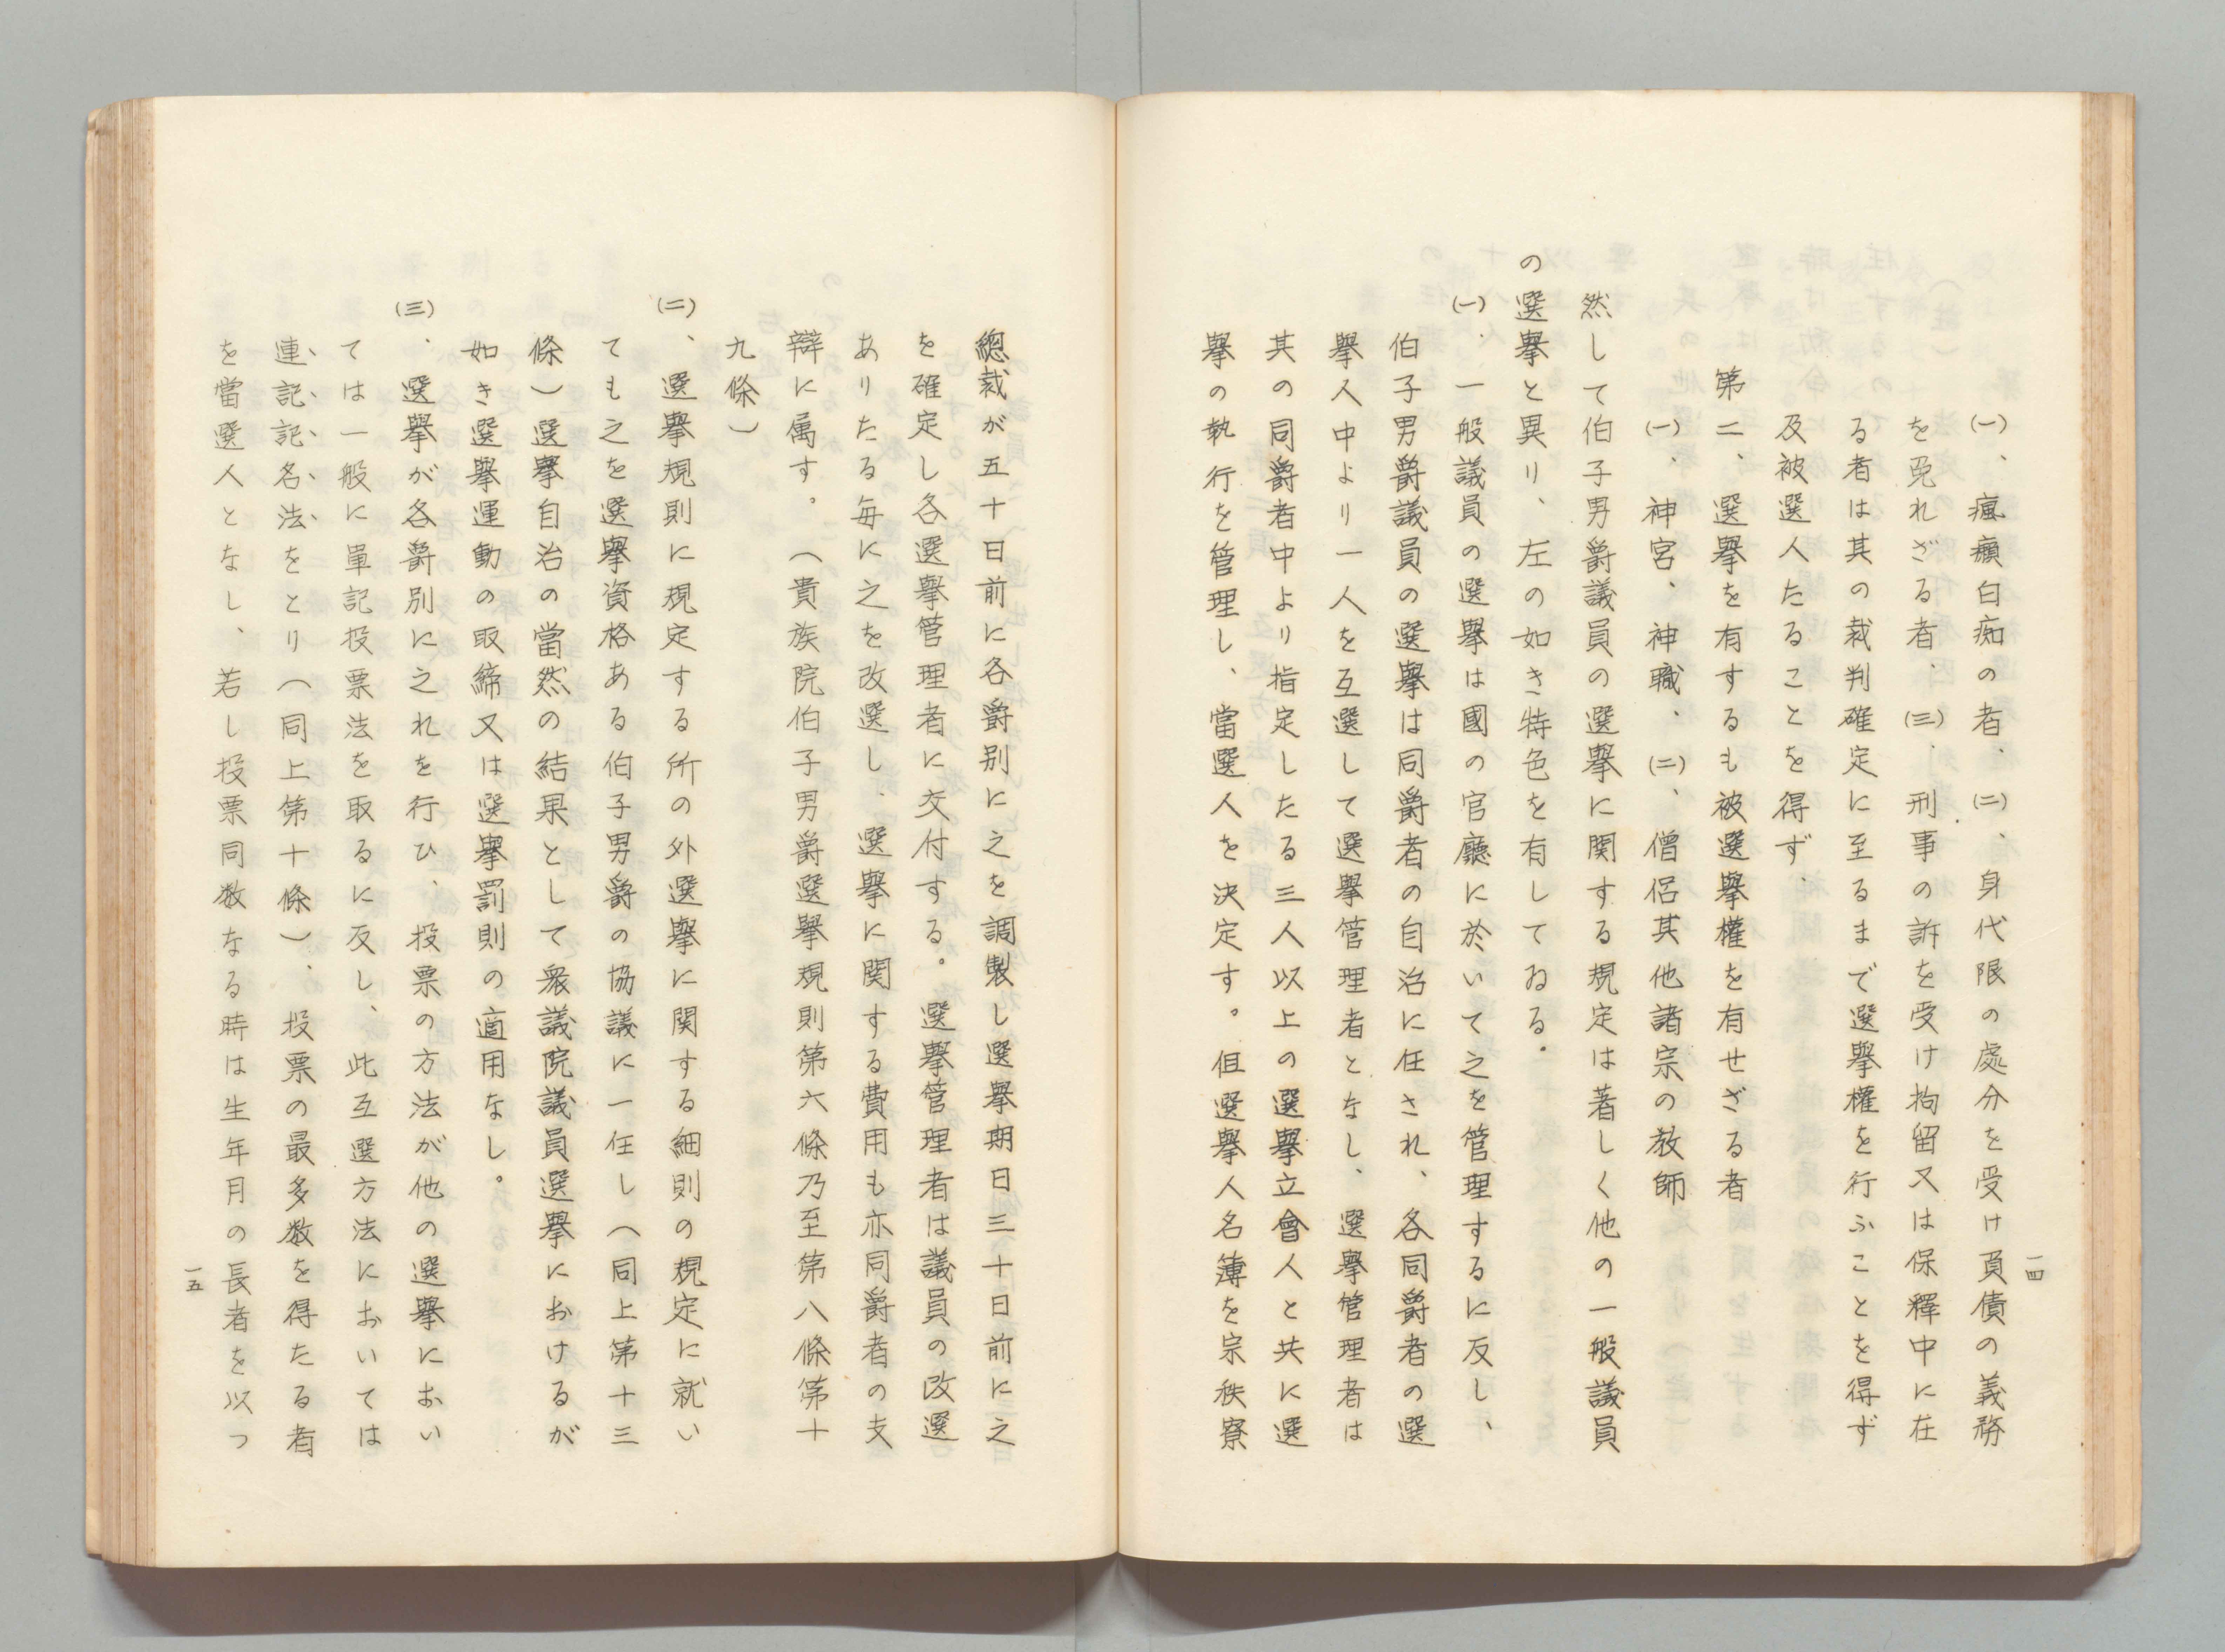 (一)、瘋癲白痴の者、(二)、身代限の處分を受け負債の義務
を免れざる者、(三)、刑事の訴を受け拘留又は保釋中に在
る者は其の裁判確定に至るまで選擧權を行ふことを得ず
及被選人たることを得ず、
第二、選擧を有するも被選擧權を有せざる者
(一)、神宮、神職、(二)、僧侶其他諸宗の敎師
然して伯子男爵議員の選擧に関する規定は著しく他の一般議員
の選擧と異り、左の如き特色を有してゐる。
(一)、一般議員の選擧は國の官廳に於いて之を管理するに反し、
伯子男爵議員の選擧は同爵者の自治に任され、各同爵者の選
擧人中より一人を互選して選擧管理者となし、選擧管理者は
其の同爵者中より指定したる三人以上の選擧立會人と共に選
擧の執行を管理し、當選人を決定す。但選擧人名簿を宗秩寮
一四
總裁が五十日前に各爵別に之を調製し選擧期日三十日前に之
を確定し各選擧管理者に交付する。選擧管理者は議員の改選
ありたる毎に之を改選し、選擧に関する費用も亦同爵者の支
辯に属す。(貴族院伯子男爵選擧規則第六條乃至第八條第十
九條)
(二)、選擧規則に規定する所の外選擧に関する細則の規定に就い
ても之を選擧資格ある伯子男爵の協議に一任し(同上第十三
條)選擧自治の當然の結果として衆議院議員選擧におけるが
如き選擧運動の取締又は選擧罰則の適用なし。
(三)、選擧が各爵別に之れを行ひ、投票の方法が他の選擧におい
ては一般に單記投票法を取るに反し、此互選方法においては
連記記名法をとり(同上第十條)、投票の最多数を得たる者
を當選人となし、若し投票同数なる時は生年月の長者を以つ
一五